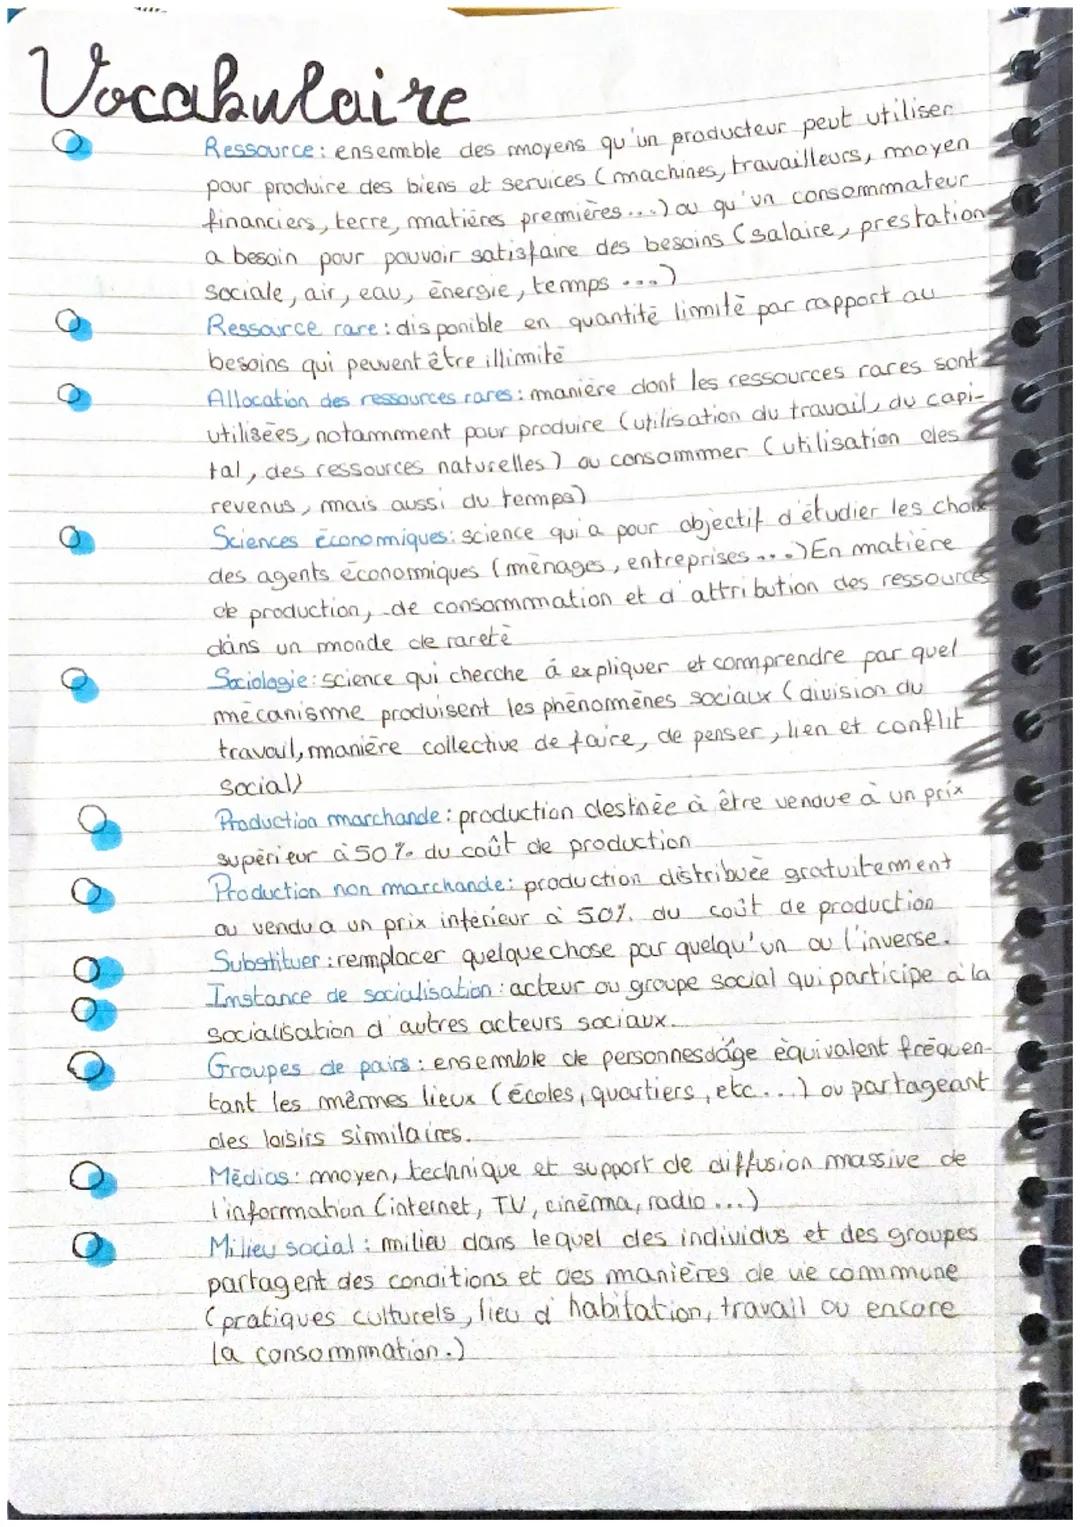 Vocabulaire
Ressource : ensemble des moyens qu'un producteur peut utiliser
pour produire des biens et services (machines, travailleurs, moyen
financiers, terre, matières premières...) ou qu'un consommateur
a besoin pour pouvoir satisfaire des besoins (salaire, prestation
sociale, air, eau, énergie, temps ...)
Ressource rare : disponible en quantité limité par rapport au
besoins qui peuvent être illimité
Allocation des ressources rares : manière dont les ressources rares sont
utilisées, notamment pour produire (utilisation du travail, du capi-
tal, des ressources naturelles) ou consommer (utilisation des
revenus, mais aussi du temps)
Sciences économiques : science qui a pour objectif d'étudier les choix
des agents économiques (ménages, entreprises ...) En matière
de production, de consommation et d'attribution des ressources
dans un monde de rareté
Sociologie : science qui cherche à expliquer et comprendre par quel
mécanisme produisent les phénomènes sociaux (division du
travail, manière collective de faire, de penser, lien et conflit
social)
Production marchande : production destinée à être vendue à un prix
supérieur à 50% du coût de production
Production non marchande : production distribuée gratuitement
ou vendu a un prix inférieur à 50% du coût de production
Substituer : remplacer quelque chose par quelqu'un ou l'inverse.
Instance de socialisation : acteur ou groupe social qui participe à la
socialisation d'autres acteurs sociaux.
Groupes de pairs : ensemble de personnes d'âge équivalent fréquen-
tant les mêmes lieux (écoles, quartiers, etc...) ou partageant
des loisirs similaires.
Médias : moyen, technique et support de diffusion massive de
l'information (internet, TV, cinéma, radio ...)
Milieu social : milieu dans lequel des individus et des groupes
partagent des conditions et des manières de vie commune
(pratiques culturels, lieu d'habitation, travail ou encore
la consommation.)